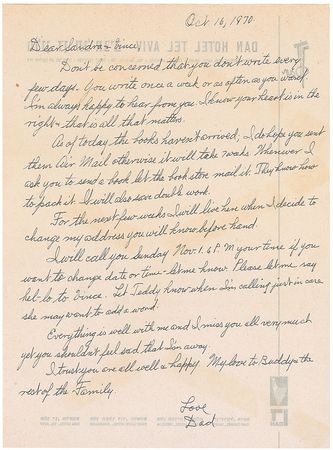 Oct 16, 1970
Dear Sandra & Vince,
Don't be concerned that you don't write every
few days. You write once a week or as often as you want
I'm always happy to hear from you. I know your heart is in the
right & that is all that matters.
As of today the books haven't arrived; I do hope you sent
them Air Mail otherwise it will take weeks. Whenever I
ask you to send a book let the book store mail it. They know how
to pack it. It will also save double work.
For the next few weeks I will live here when I decide to
change my address you will know before hand.
I will call you Sunday Nov. 1. 6 P.M your time if you
want to change date or time - let me know. Please let me say
hel-lo to Vince. Let Teddy know when I'm calling just in case
she may want to add a word.
Everything is well with me and I miss you all very much
yet you shouldn't feel sad that I'm away.
I trust you are all well & happy. My love to Buddy & the
rest of the Family.
Love
Dad
DAN HOTEL TEL AVIV
DAN